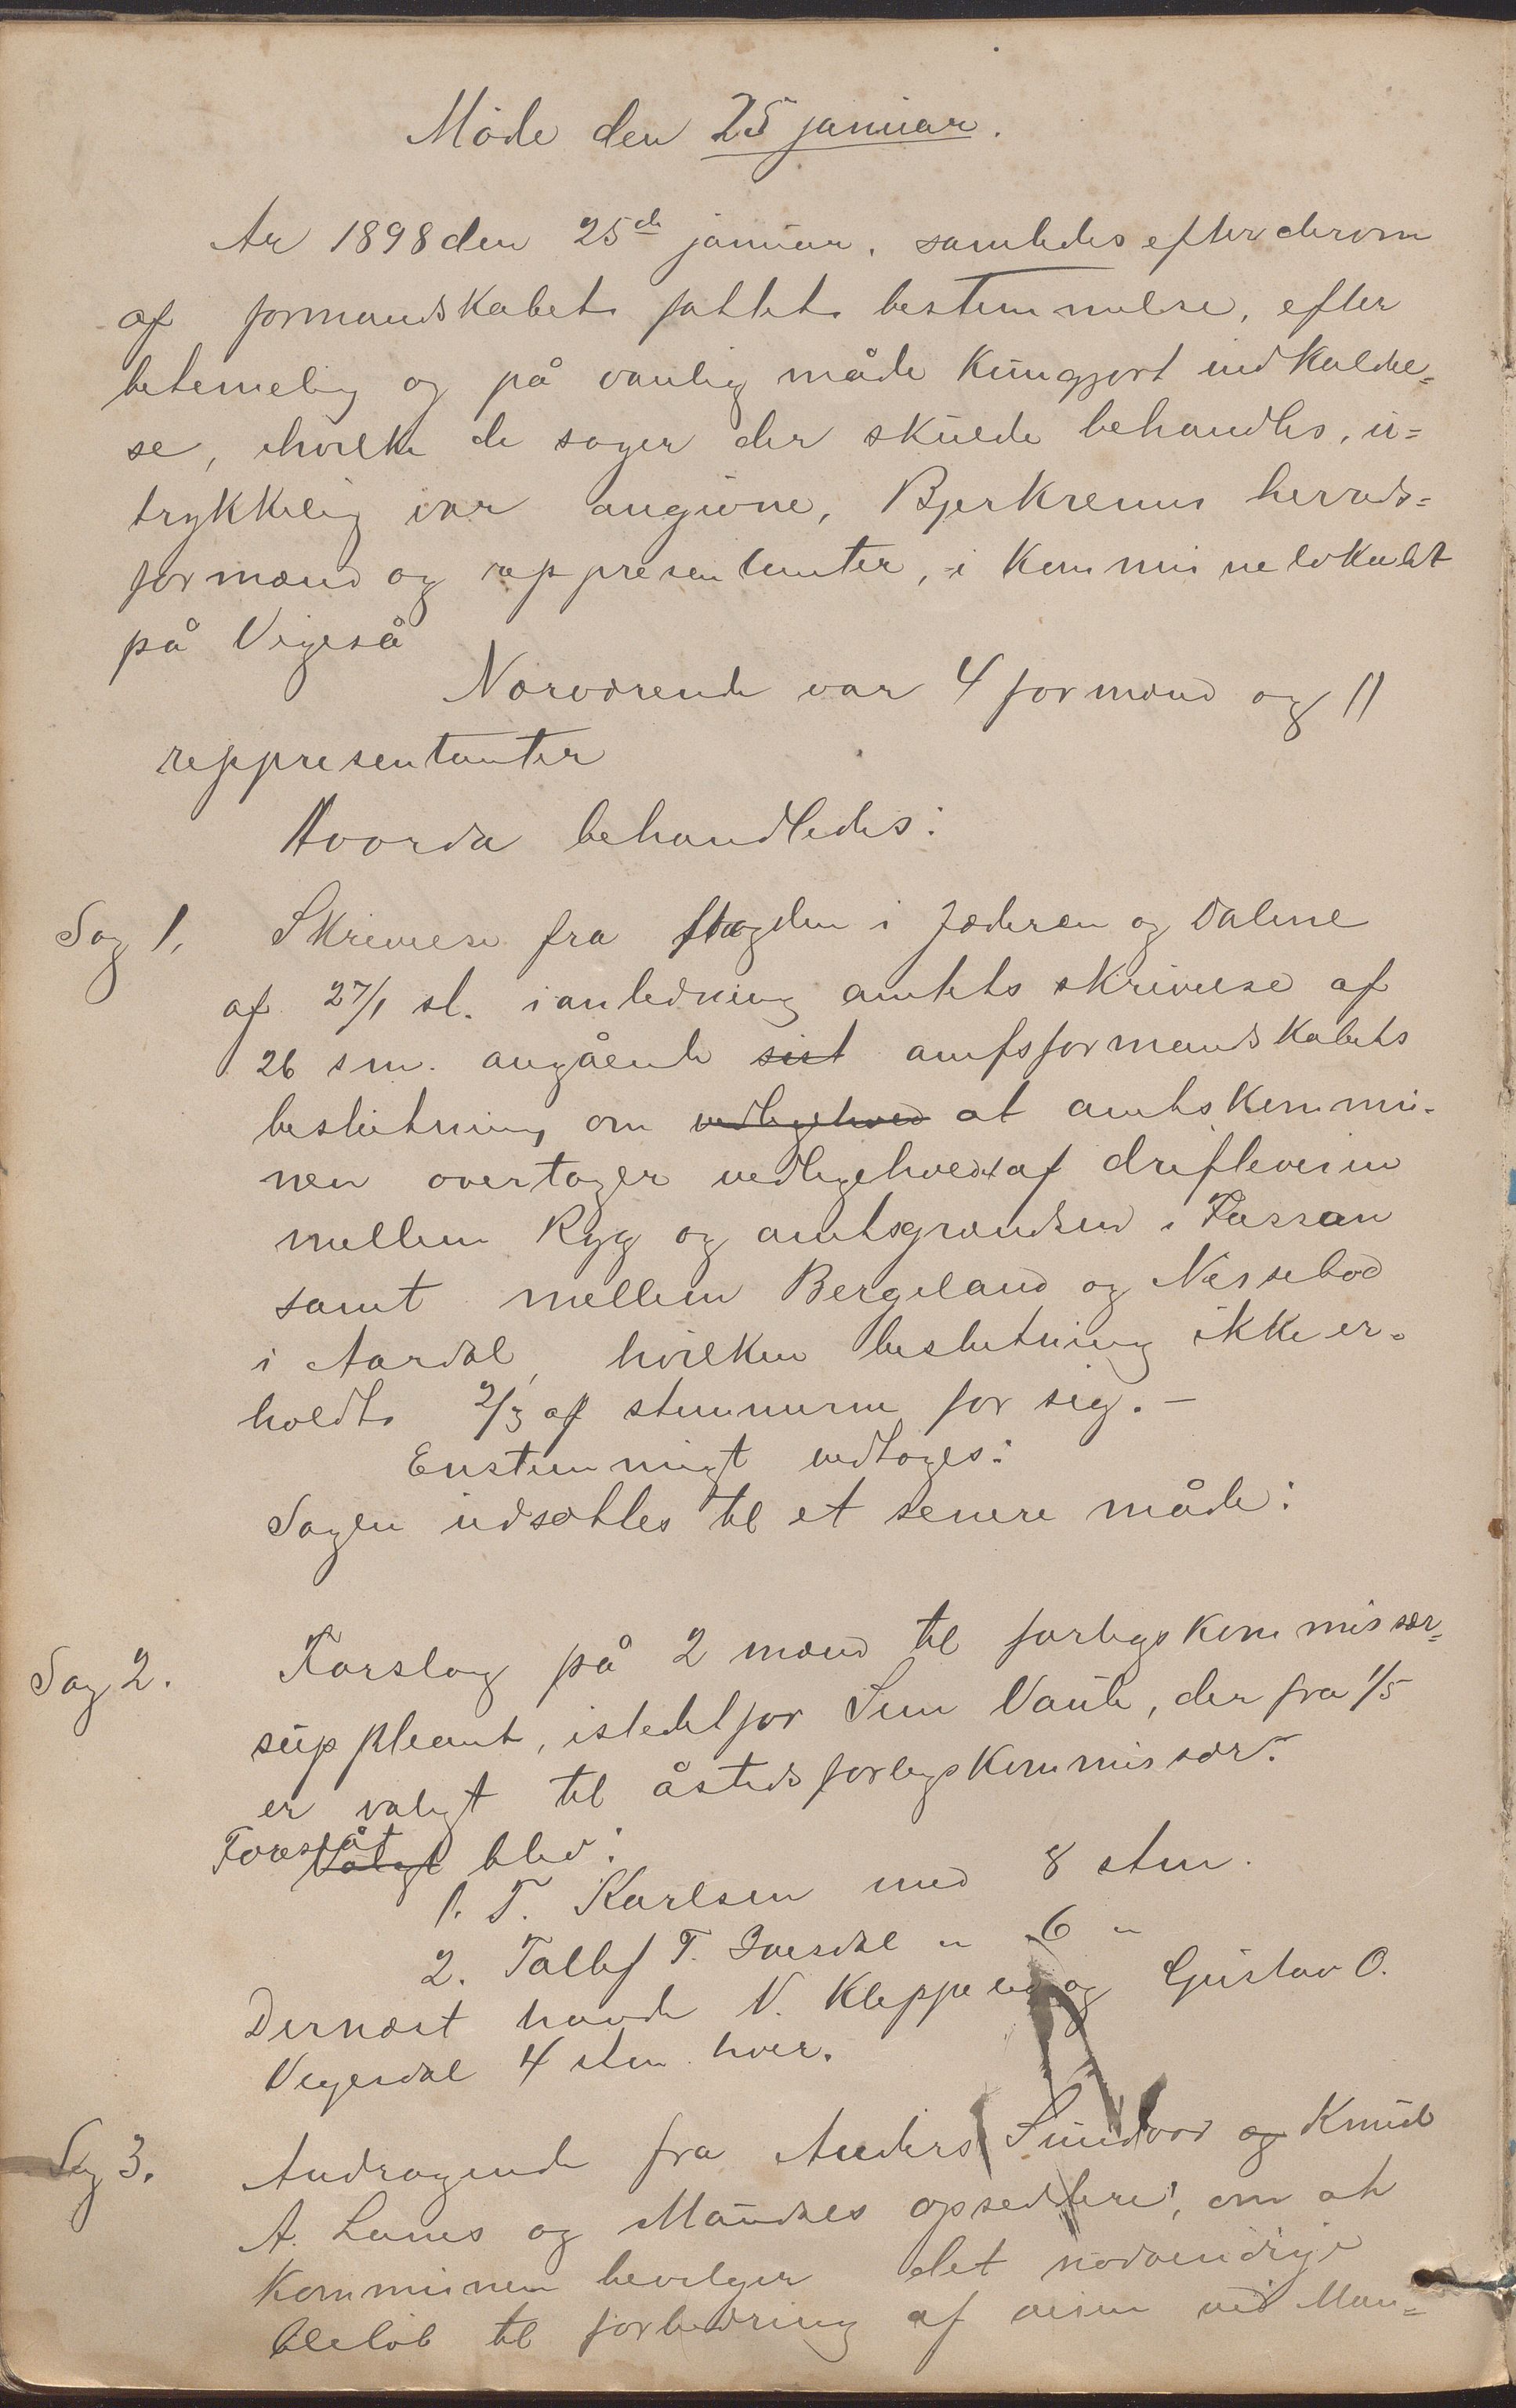 Møde den 25 januar.
År 1898 den 25de januar, samledes efter derom
af formandskabet fattet bestemmelse, efter
betimelig og på vanlig måde kungjort indkaldel=
se, ihvilke de sager der skulde behandles, u=
trykkelig var angivne, Bjerkreims herreds=
formænd og reppresentanter, i kommunelokalet
på Vigeså
Nærværende var 4 formænd og 11
reppresentanter
Hvorda behandledes:
Sag 1, Skrivelse fra fogden i Jæderen og Dalene
af 27/1 sl. i anledning amtets skrivelse af
26 s m. angående sist amtsformandskabets
beslutning om vedligehold at amtskommu-
nen overtager vedligeholdet af drifteveien
mellem Ryg og amtsgrændsen i Fassan
samt mellem Bergeland og Nessebød
i Aardal, hvilken beslutning ikke er-
holdte 2/3 af stemmerne for sig. -
Enstemmigt vedtoges:
Sagen udsættes til et senere møde:
Sag 2. Forslag på 2 mænd til forligskommissær=
suppleant, istedetfor Sven Vaule, der fra 1/5
er valgt til åstedsforligskommissær.
Foreslåt Valgt blev:
1. T. Karlsen med 8 stm.
2. Tallef T. Ivesdal " 6 "
Dernæst havde N. Kleppelid og Gustav O.
Vegesdal 4 stm. hver.
Sag 3. Andragende fra Anders Sundvor og Knud
A. Launes og Maudals opsiddere, om at
kommunen bevilger det nødvendige
beløb til forbedring af veien ved Mau=